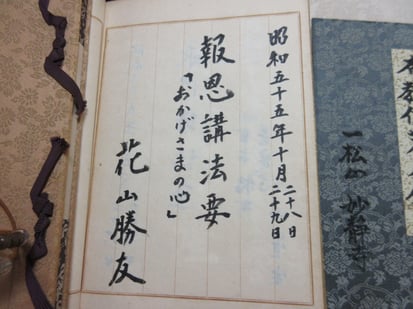 昭和五十五年十月二十八日
二十九日
報恩講法要
「おかげさまの心」
花山勝友
一松山 妙静寺